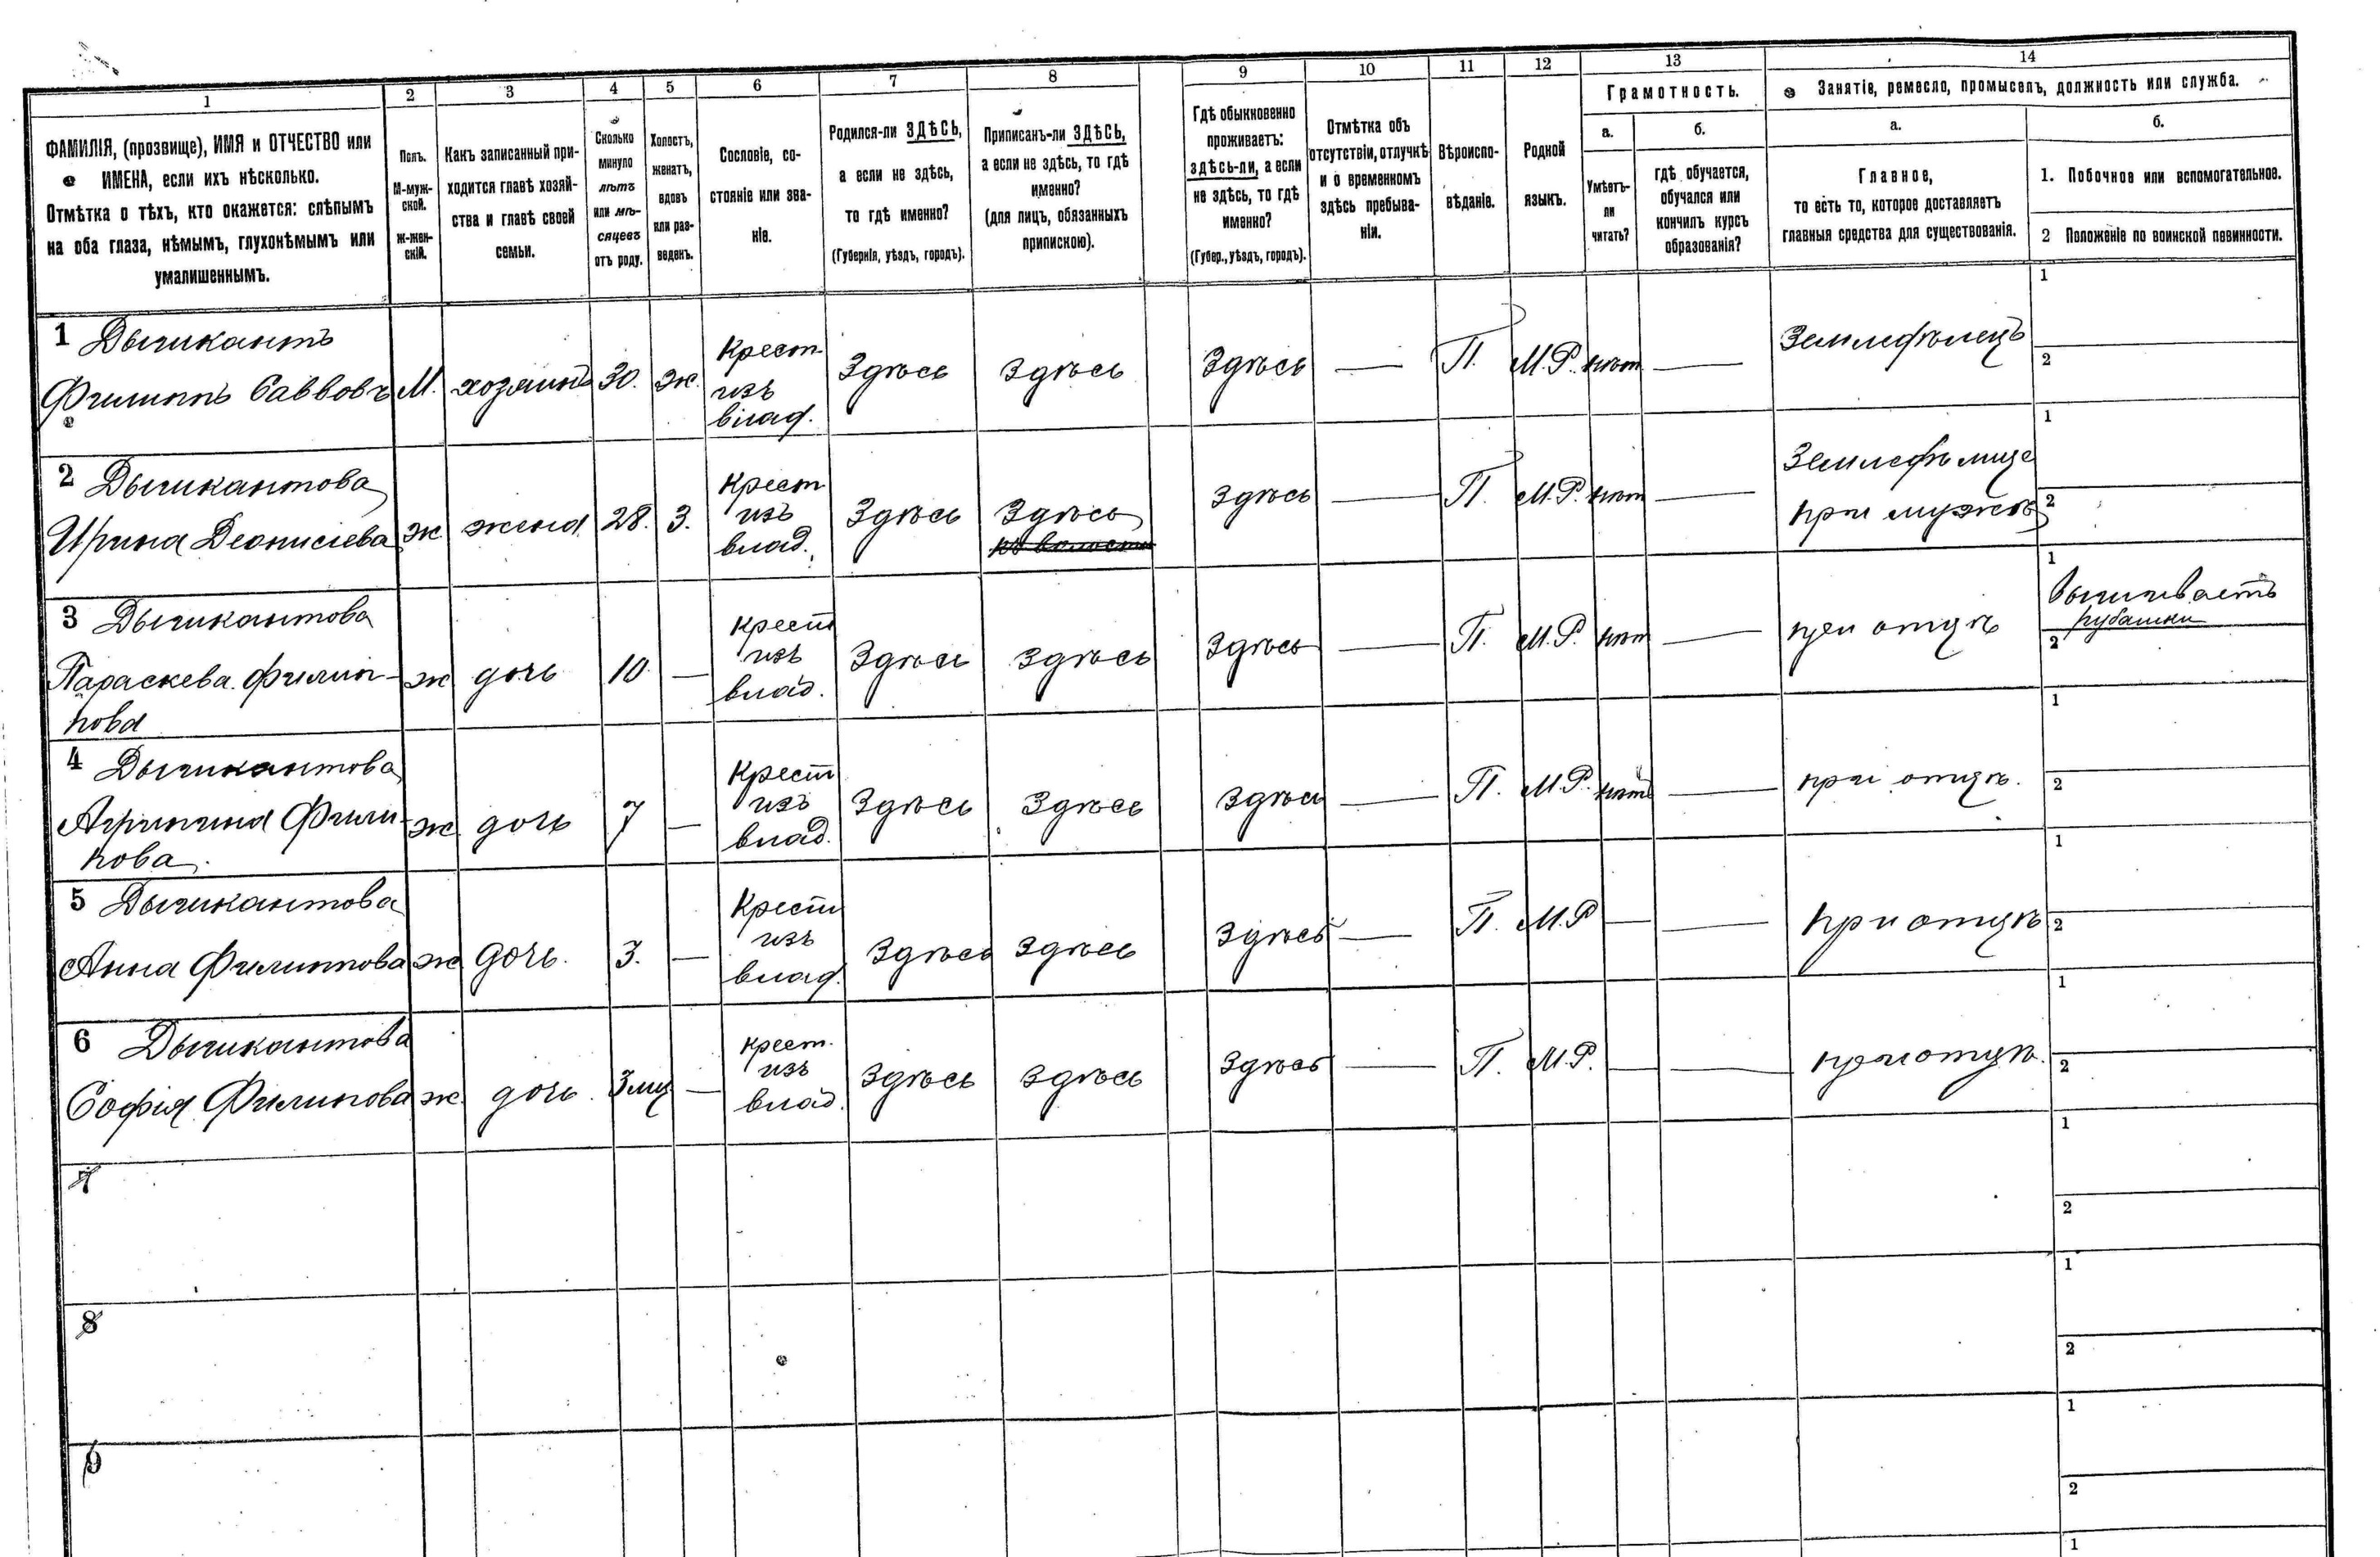 1
2
3
4
5
6
7
8
9
10
11
12
13
14
ФАМИЛІЯ, (прозвище), ИМЯ и ОТЧЕСТВО или
ИМЕНА, если ихъ нѣсколько.
Отмѣтка о тѣхъ, кто окажется: слѣпымъ
на оба глаза, нѣмымъ, глухонѣмымъ или
умалишеннымъ.
Полъ.
М-муж-
ской.
Ж-жен-
скій.
Какъ записанный при-
ходится главѣ хозяй-
ства и главѣ своей
семьи.
Сколько
минуло
лѣтъ
или мѣ-
сяцевъ
отъ роду.
Холостъ,
женатъ,
вдовъ
или раз-
веденъ.
Сословіе, со-
стояніе или зва-
ніе.
Родился-ли ЗДѢСЬ,
а если не здѣсь,
то гдѣ именно?
(Губернія, уѣздъ, городъ).
Приписанъ-ли ЗДѢСЬ,
а если не здѣсь, то гдѣ
именно?
(для лицъ, обязанныхъ
припискою).
Гдѣ обыкновенно
проживаетъ:
здѣсь-ли, а если
не здѣсь, то гдѣ
именно?
(Губер., уѣздъ, городъ).
Отмѣтка объ
отсутствіи, отлучкѣ
и о временномъ
здѣсь пребыва-
ніи.
Вѣроиспо-
вѣданіе.
Родной
языкъ.
Грамотность.
а.
Умѣетъ-
ли
читать?
б.
гдѣ обучается,
обучался или
кончилъ курсъ
образованія?
Занятіе, ремесло, промыселъ, должность или служба.
а.
Главное,
то есть то, которое доставляетъ
главныя средства для существованія.
б.
1. Побочное или вспомогательное.
2 Положеніе по воинской повинности.
1 Дычикантъ
Филиппъ Саввовъ
М.
хозяинъ
30.
ж.
Крест
изъ
влад.
Здѣсь
Здѣсь
Здѣсь
—
П.
М.Р.
нѣт
—
Земледѣлецъ
1
2
2 Дычикантова
Ирина Деонисіева
ж
жена
28.
З.
Крест
изъ
влад.
Здѣсь
Здѣсь
Здѣсь
—
П.
М.Р.
нѣт
—
при мужѣ
1
2
3 Дычикантова
Параскева Филип-
пова
ж
дочь
10
—
Крест
изъ
влад.
Здѣсь
Здѣсь
Здѣсь
—
П.
М.Р.
нѣт
—
при отцѣ
1
Вышиваетъ
рубашки
2
4 Дычикантова
Агрипина Фили-
пова.
ж
дочь
7
—
Крест
изъ
влад.
Здѣсь
Здѣсь
Здѣсь
—
П.
М.Р.
нѣтъ
—
при отцѣ.
1
2
5 Дычикантова
Анна Филиппова
ж
дочь.
3.
—
Крест
изъ
влад.
Здѣсь
Здѣсь
Здѣсь
—
П.
М.Р
—
—
при отцѣ
1
2
6 Дычикантова
Софія Филипова
ж.
дочь.
3 мц
—
крест.
изъ
влад.
Здѣсь
Здѣсь
Здѣсь
—
П.
М.Р.
—
—
при отцѣ.
1
2
7
1
2
8
1
2
9
1
2
1